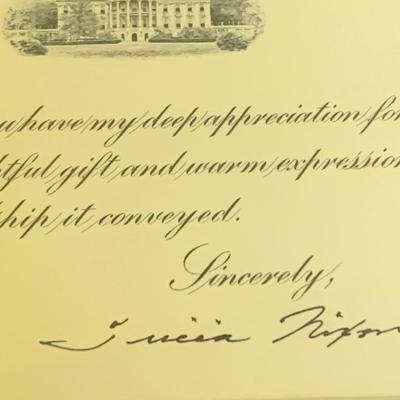 u have my deep appreciation for
tful gift and warm expression
ship it conveyed.
Sincerely,
Tricia Nixon